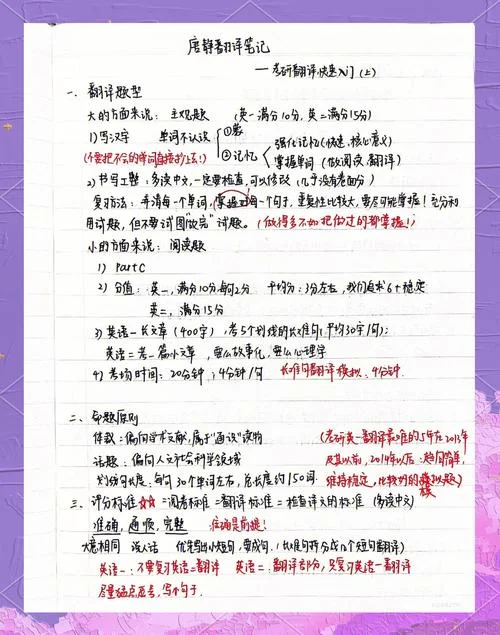 唐静翻译笔记
—考研翻译快速入门(上)
一、翻译题型
大的方面来说: 主观题 (英一满分10分, 英二满分15分)
1)写汉字 单词不认识 ①蒙
②记忆 强化记忆(快速、核心意义)
掌握单词(做阅读、翻译)
(不要把不会的单词直接抄上去!)
2) 书写工整: 多读中文, 一定要检查, 可以修改 (几乎没有卷面分)
复习方法: 弄清每一个单词, 掌握每一个句子, 重复性比较大, 要尽可能掌握! 充分利
用试题, 但不要试图"做完"试题。(做得多不如把做过的都掌握!)
小的方面来说: 阅读题
1) Part C
2) 分值: 英一, 满分10分, 每句2分 平均分: 3分左右, 我们追求6+稳定
英二, 满分15分
3) 英语一长文章 (400字), 考5个划线的长难句(平均30字/句);
英语二考一篇小文章, 要么故事化, 要么心理学
4) 考场时间: 20分钟; 4分钟/句 长难句翻译模拟: 4分钟
二、命题原则
体裁: 偏向学术文献, 属于"通识"读物 (考研英一翻译最难的5年在2013年
话题: 偏向人文社会科学领域 及其以前, 2014年以后: 趋向简单,
划线句长度: 每句30个单词左右, 总长度约150词 维持稳定,
三、评分标准☆☆=阅卷标准=翻译标准=检查译文的标准 (多读中文)
准确, 通顺, 完整 准确是前提!
大意相同 说人话 优先写出小短句, 要成句. (长难句拆分成几个短句翻译)
英语一: 不要复习英语二翻译 英语二: 翻译部分, 只复习英语一翻译
尽量 写小句子.